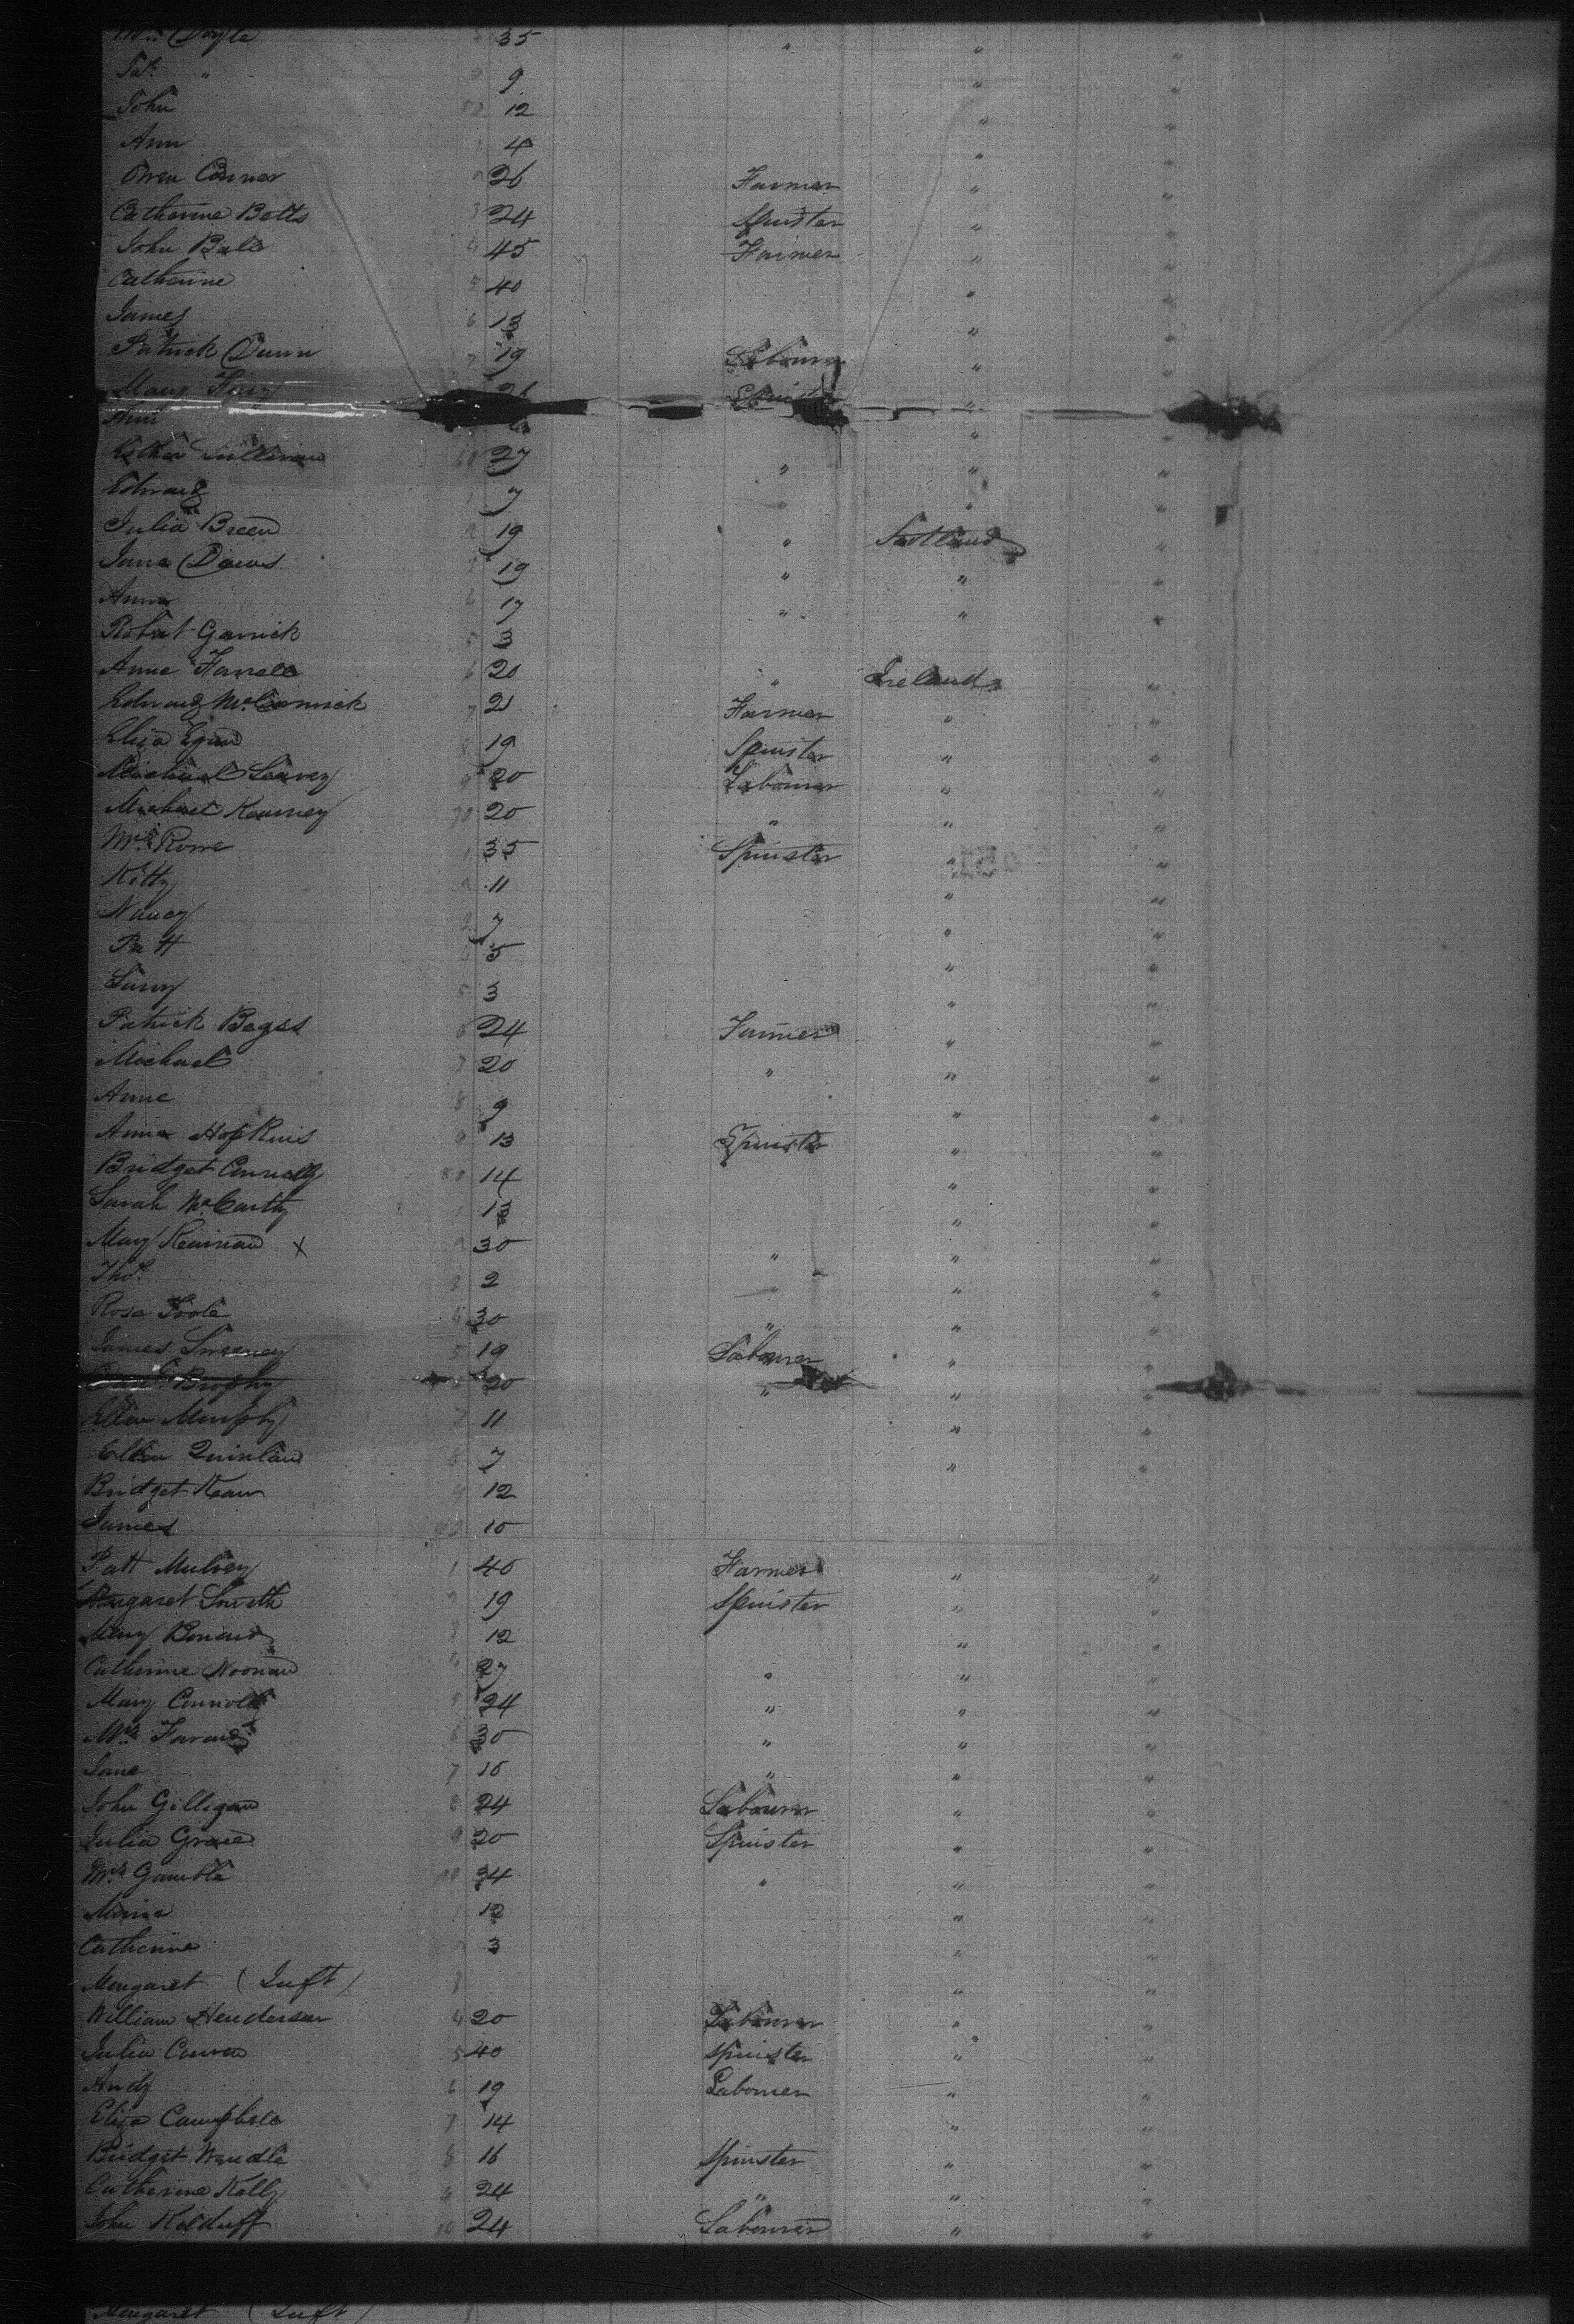 Doyle 35 " " "
Pat. " 9 " "
John 12 " "
Ann 4 " "
Owen Connor 26 Farmer " "
Catherine Botts 24 Spinster " "
John Ball 45 Farmer " "
Catherine 5 40 " "
James 6 13 " "
Patrick Dunn 7 19 Labourer " "
Mary 26 Spinster "
Ann " "
Esther Sullivan 60 27 " " "
Edward 1 7 " "
Julia Breen 2 19 " Scotland "
Jane Daws 3 19 " " "
Anna 4 17 " " "
Robert Garrick 5 3
Anne Farrell 6 20 " Ireland "
Edward McCormick 7 21 Farmer " "
Eliza Egan 8 19 Spinster " "
Michael Leavey 9 20 Labourer " "
Michael Kearney 70 20 " " "
Mrs. Rowe 1 35 Spinster " "
Kitty 2 11 " "
Nancy 3 7 " "
Patt 4 5 " "
Larry 5 3 " "
Patrick Beggs 6 24 Farmer " "
Michael 7 20 " " "
Anne 8 9 " "
Anna Hopkins 9 13 Spinster " "
Bridget Connolly 80 14 " "
Sarah McCarthy 1 13 " "
Mary X 2 30 " " "
Thos. 3 2 " " "
Rosa Toole 4 30 " " "
James Sweeney 5 19 Labourer " "
Brophy 20 " " "
Ellen Murphy 7 11 " "
Ellen Quinlan 8 7 " "
Bridget Kean 9 12
James 90 10
Patt Mulvey 1 40 Farmer " "
Margaret Smith 2 19 Spinster " "
Mary 3 12 " "
Catherine Noonan 4 27 " " "
Mary Connolly 5 24 " " "
Mrs. 6 30 " " "
Jane 7 10 " " "
John Gilligan 8 24 Labourer " "
Julia Grace 9 20 Spinster " "
Mrs. Gamble 100 34 " " "
Maria 1 12 " "
Catherine 2 3 " "
Margaret (Inft) 3 " "
William Henderson 4 20 Labourer " "
Julia 5 40 Spinster " "
Andy 6 19 Labourer " "
Eliza Campbell 7 14 " "
Bridget Wendle 8 16 Spinster " "
Catherine Kelly 9 24 " " "
John Kilduff 10 24 Labourer " "
Margaret (Inft)